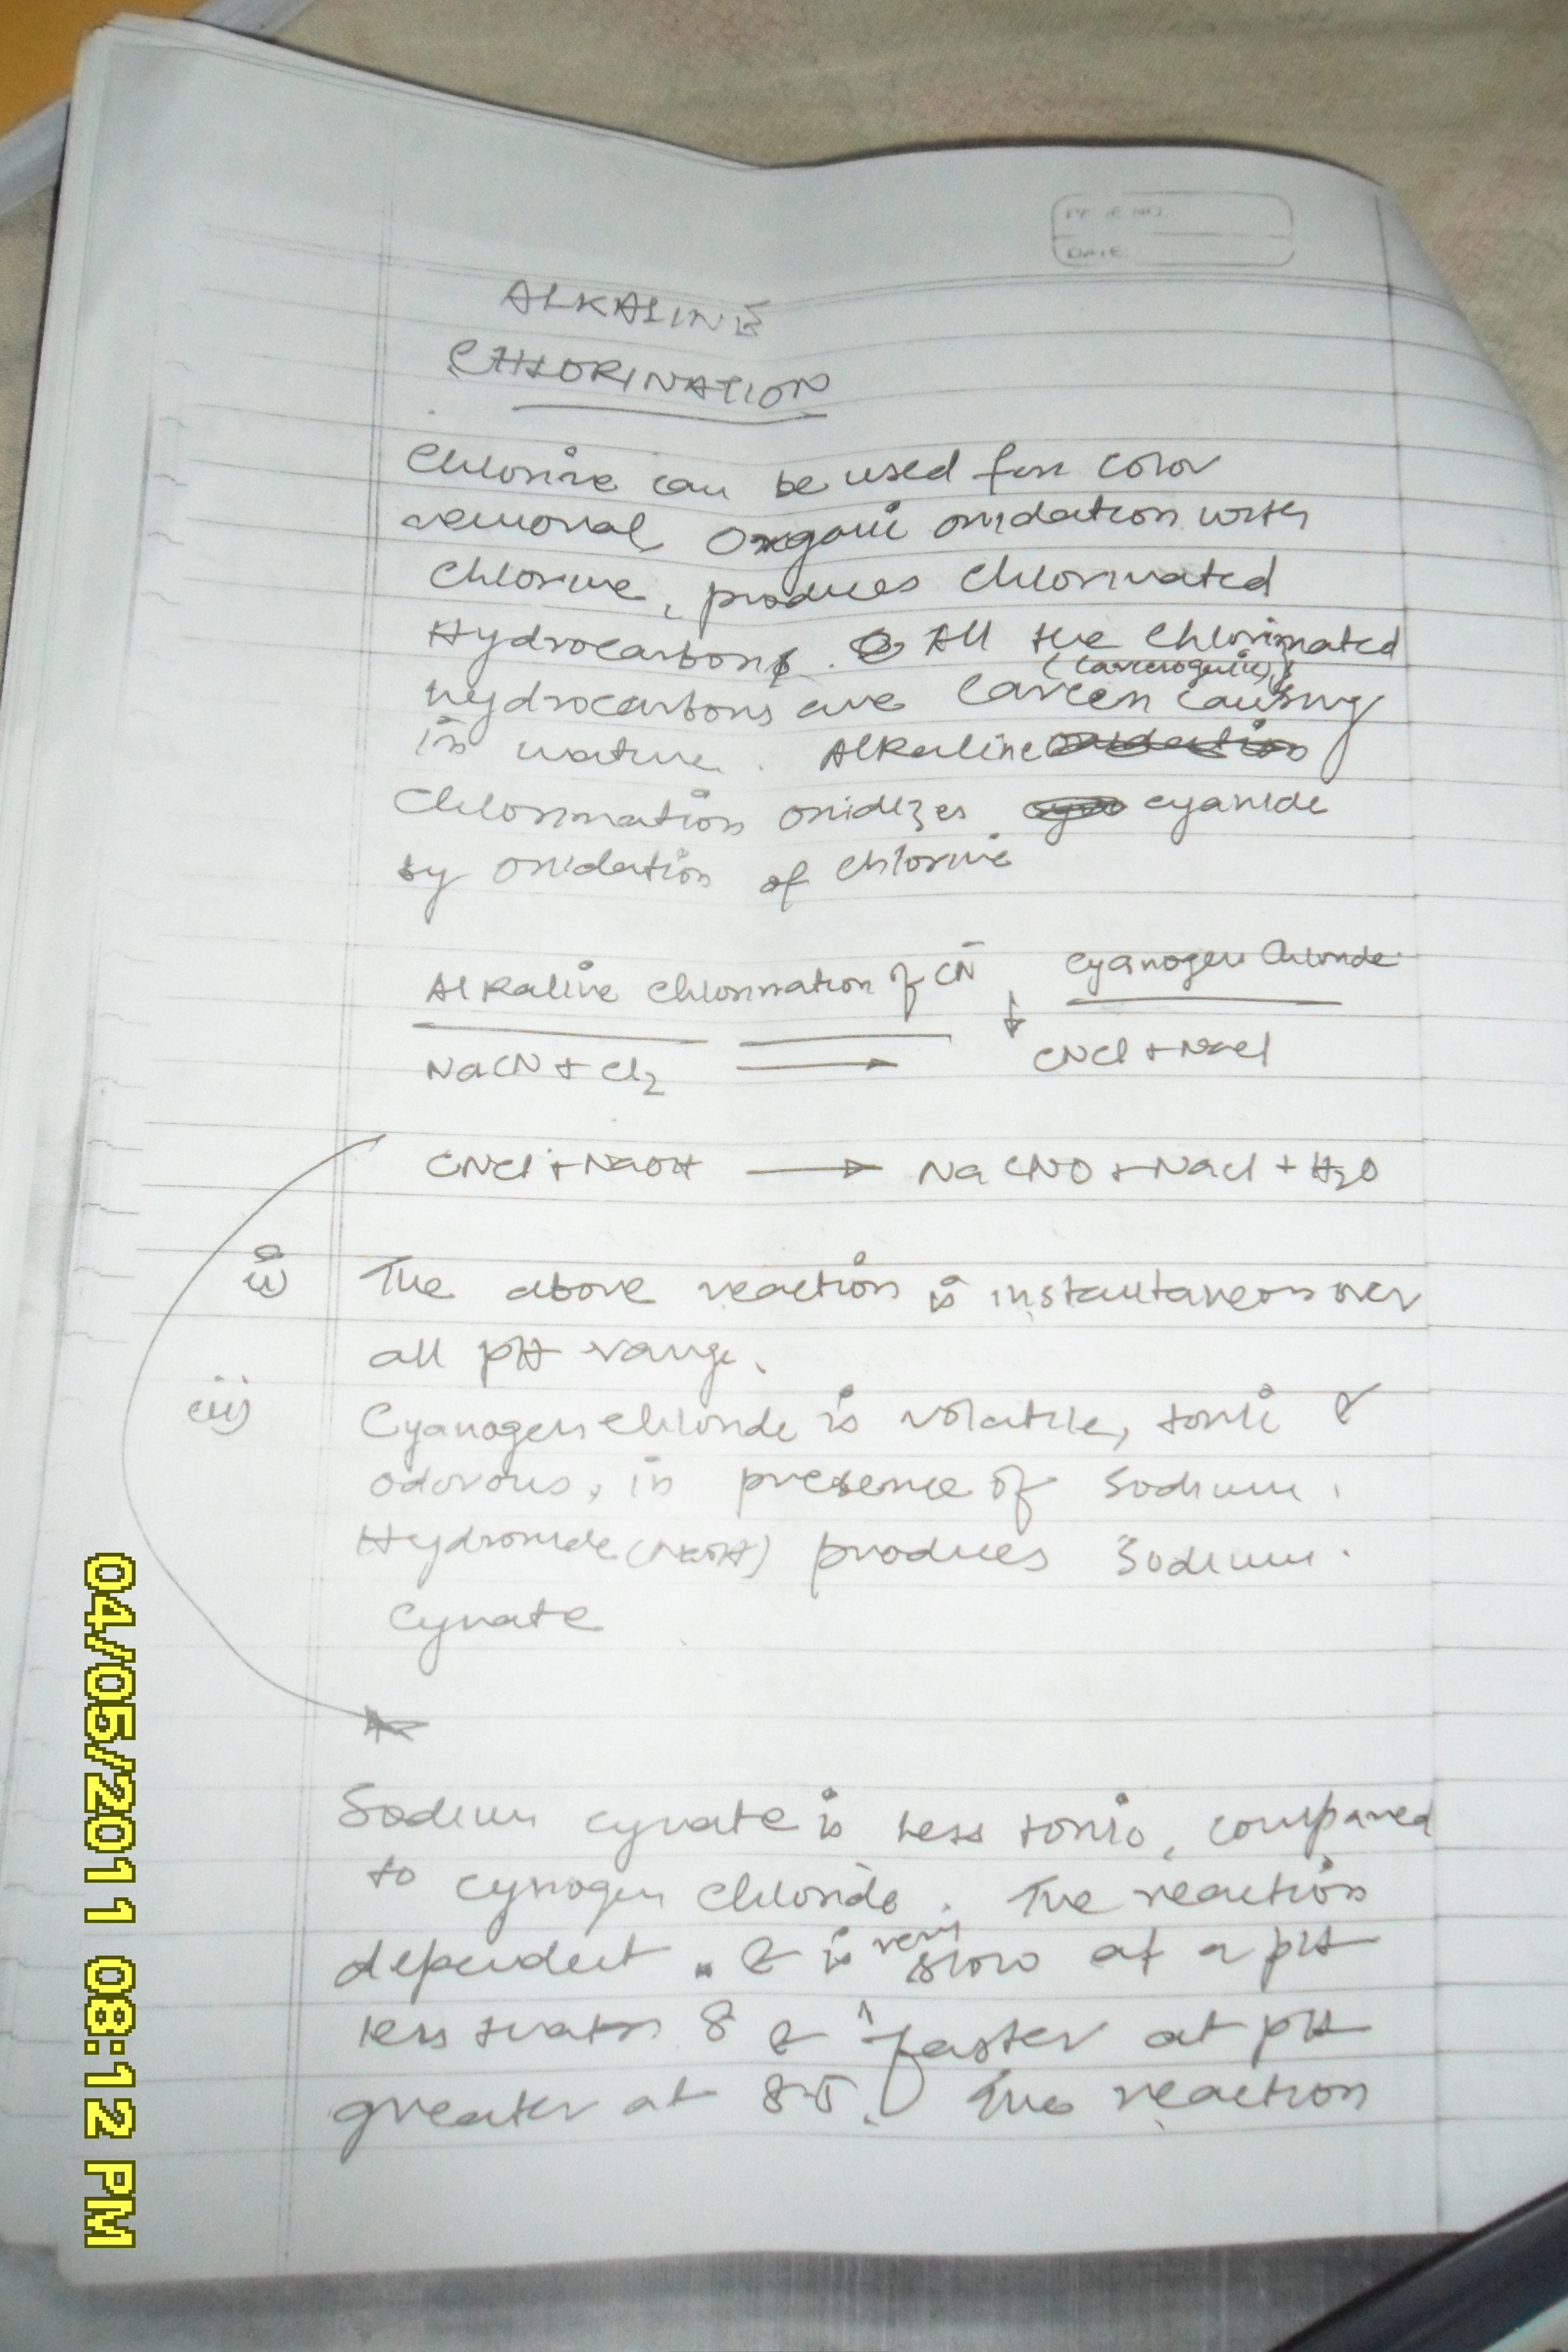 PAGE NO.
DATE:
ALKALINE
CHLORINATION
Chlorine can be used for color
removal Organic oxidation with
Chlorine, produces Chlorinated
Hydrocarbons. All the Chlorinated
(Carcerogenic)
hydrocarbons are Cancer causing
in nature. Alkaline
Chlorination oxidizes cyanide
by oxidation of chlorine
Alkaline Chlorination of CN⁻
Cyanogen Chloride
↓
NaCN + Cl₂ → CNCl + NaCl
CNCl + NaOH → NaCNO + NaCl + H₂O
i) The above reaction is instantaneous over
all pH range.
ii) Cyanogen chloride is volatile, toxic &
odorous, in presence of Sodium
Hydroxide (NaOH) produces Sodium
Cynate
Sodium cynate is less toxic, compared
to cynogen chloride. The reaction
dependent. & is very slow at a pH
less than 8 & faster at pH
greater at 8.5. The reaction
04/05/2011 08:12 PM